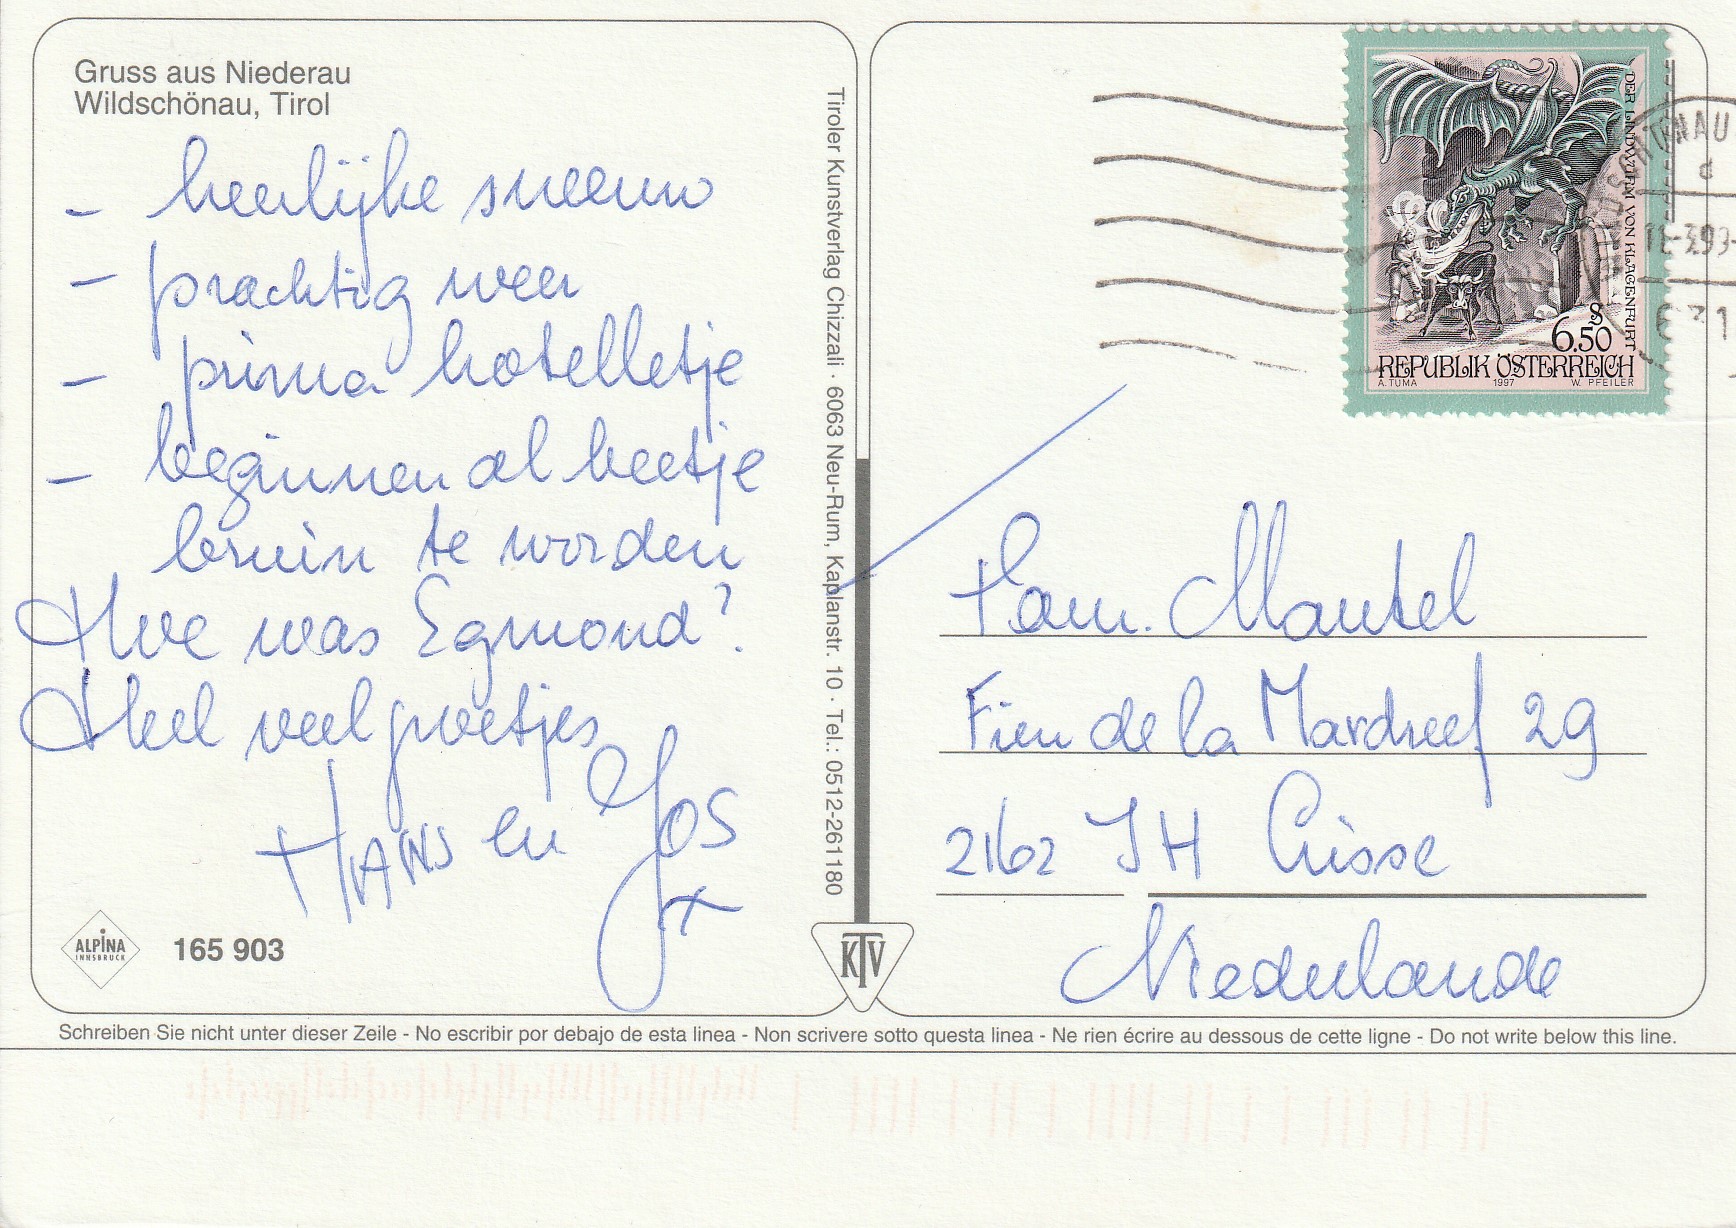 Gruss aus Niederau
Wildschönau, Tirol
- heerlijke sneeuw
- prachtig weer
- prima hotelletje
- beginnen al beetje
bruin te worden
Hoe was Egmond?
Heel veel groetjes
HANS en JOS
x
ALPINA
INNSBRUCK
165 903
Tiroler Kunstverlag Chizzali · 6063 Neu-Rum, Kaplanstr. 10 · Tel.: 0512-261180
KTV
DER LINDWURM VON KLAGENFURT
S
6.50
REPUBLIK ÖSTERREICH
A. TUMA 1997 W. PFEILER
WILDSCHÖNAU
d
631
Fam. Mantel
Fien de la Mardreef 29
2162 JH Lisse
Niederlande
Schreiben Sie nicht unter dieser Zeile - No escribir por debajo de esta linea - Non scrivere sotto questa linea - Ne rien écrire au dessous de cette ligne - Do not write below this line.